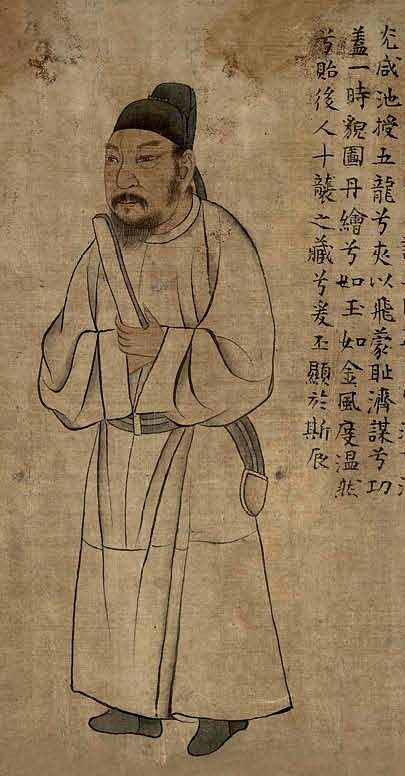 光咸池授五龍兮夾以飛蒙恥濟謀兮功
蓋一時貌圖丹繪兮如玉如金風度温然
兮貽後人十襲之藏兮爰丕顯於斯辰